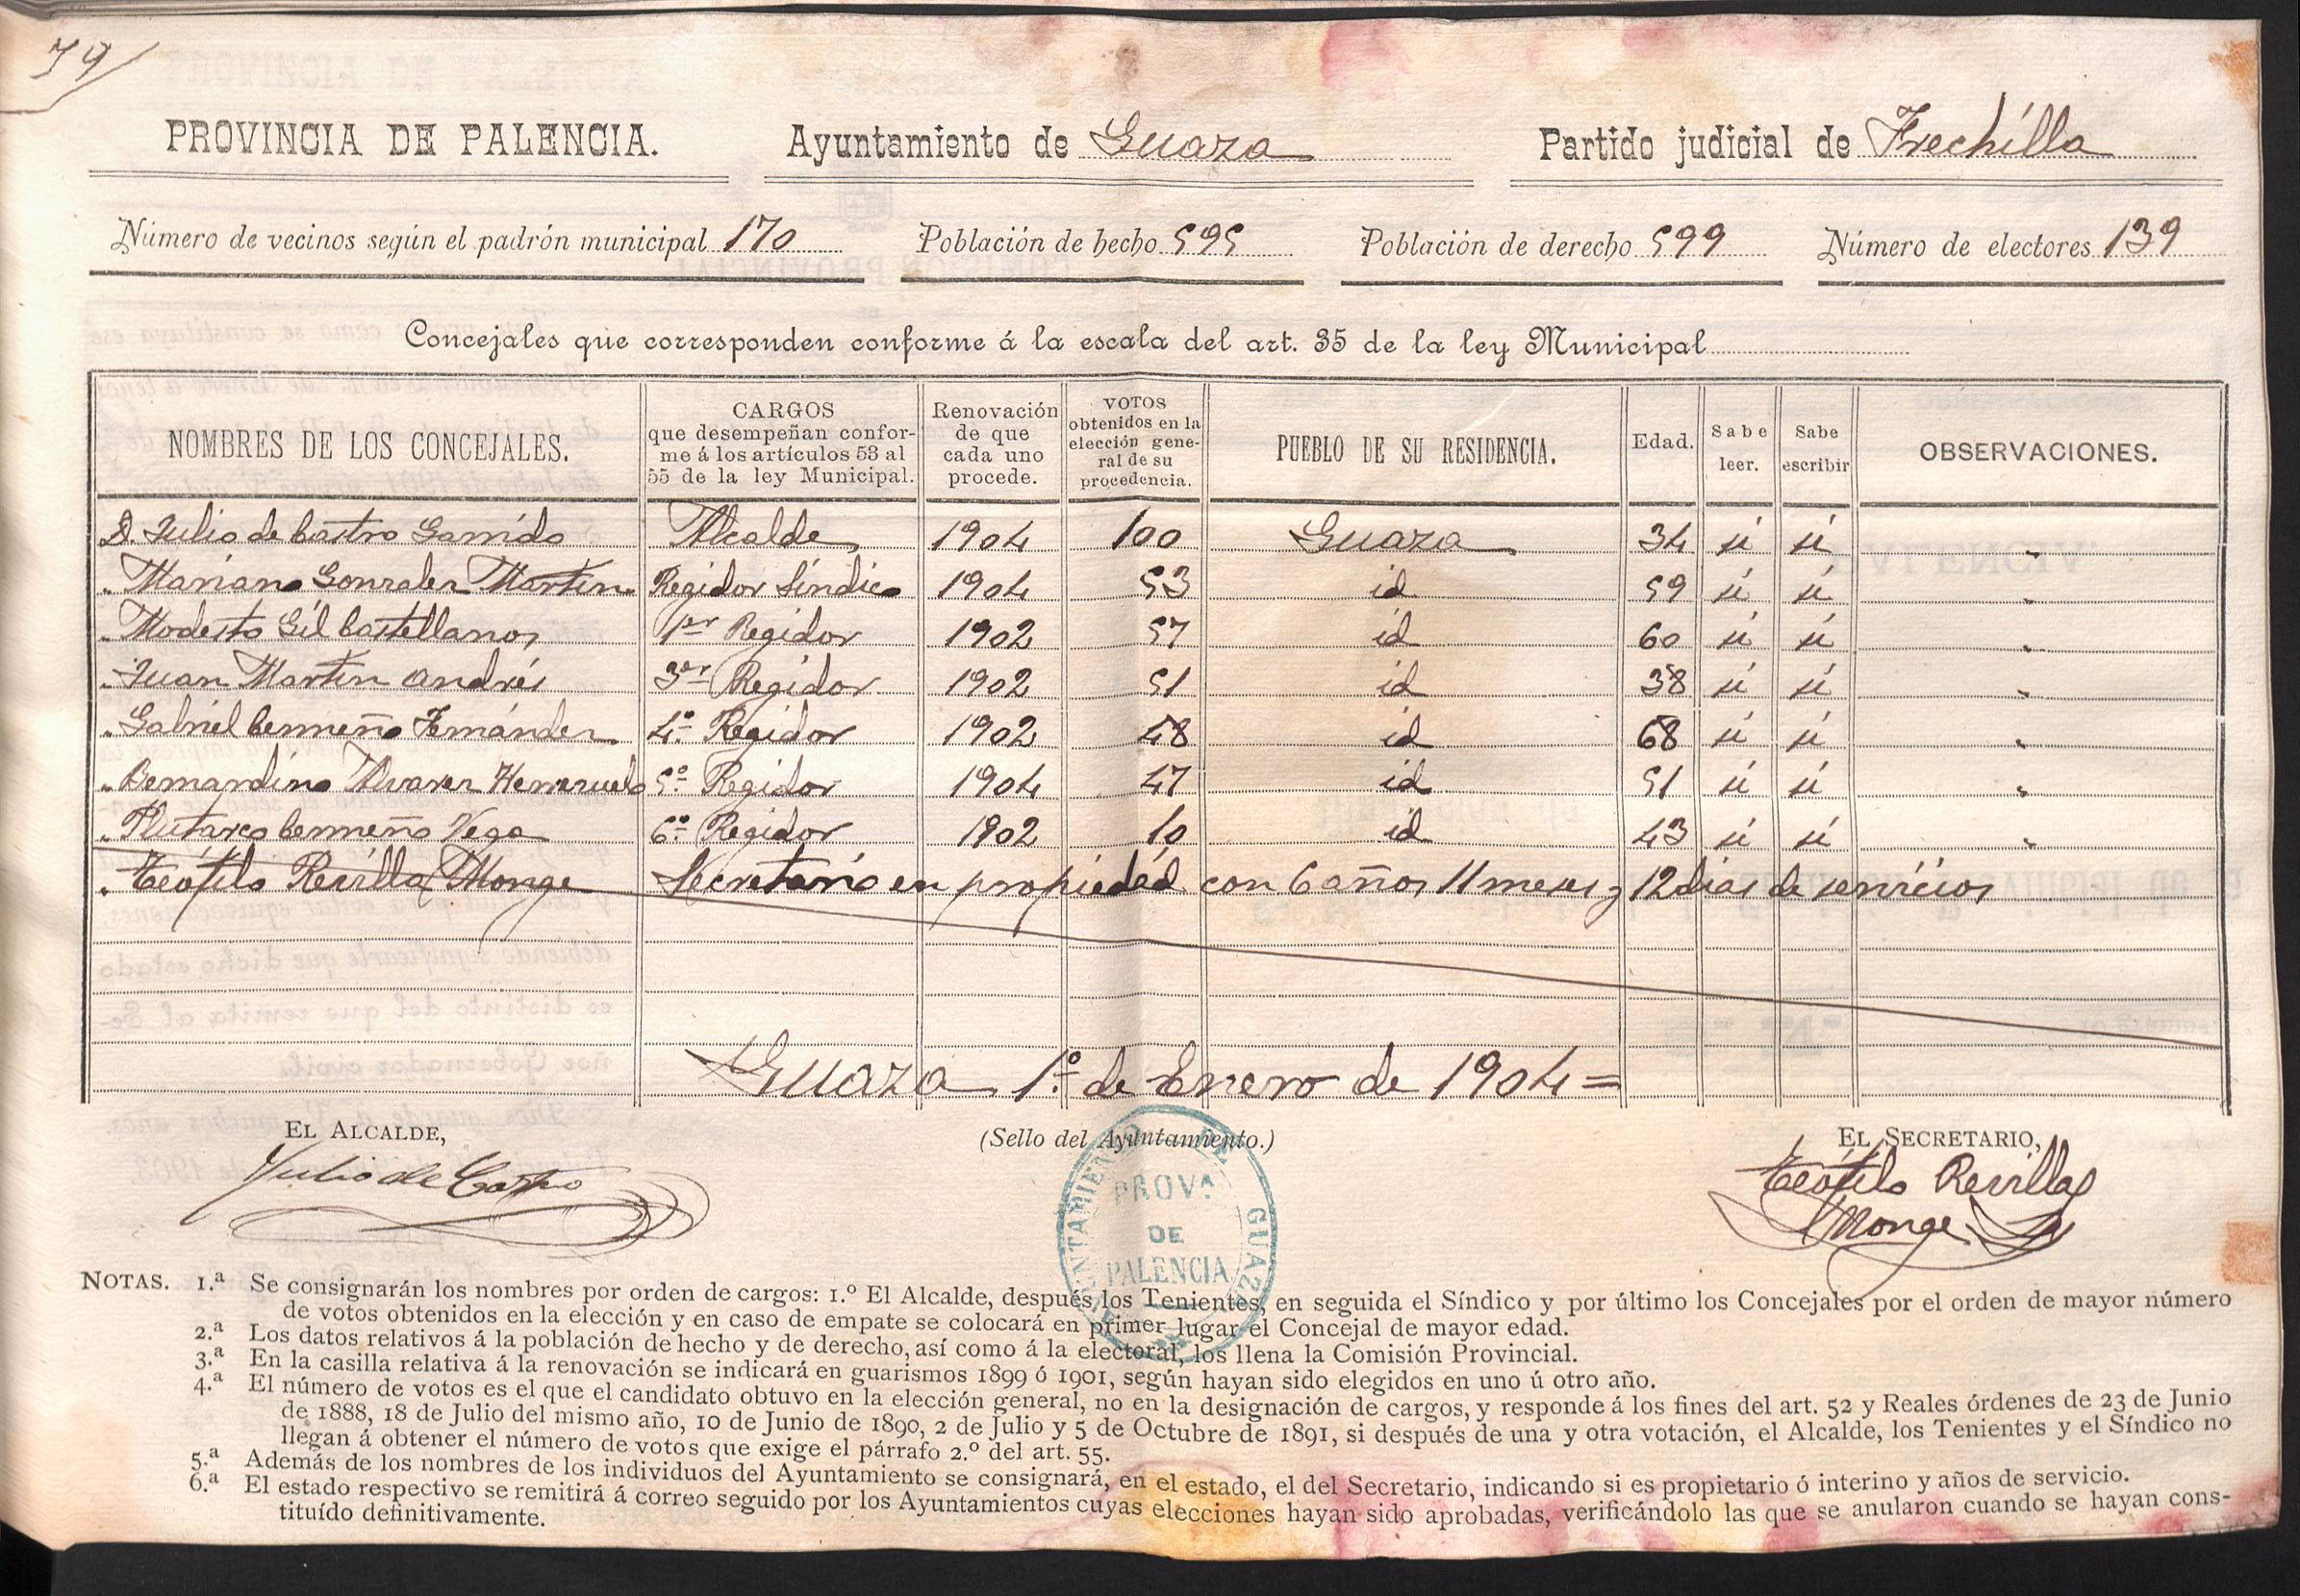 79
PROVINCIA DE PALENCIA. Ayuntamiento de Guaza Partido judicial de Frechilla
Número de vecinos según el padrón municipal 170 Población de hecho 595 Población de derecho 599 Número de electores 139
Concejales que corresponden conforme á la escala del art. 35 de la ley Municipal
NOMBRES DE LOS CONCEJALES. CARGOS que desempeñan conforme á los artículos 53 al 55 de la ley Municipal. Renovación de que cada uno procede. VOTOS obtenidos en la elección general de su procedencia. PUEBLO DE SU RESIDENCIA. Edad. Sabe leer. Sabe escribir OBSERVACIONES.
D. Julio de Castro Garrido Alcalde 1904 100 Guaza 34 si si "
" Mariano Gonzalez Martin Regidor Síndico 1904 53 id 59 si si "
" Modesto Gil Castellanos 1er Regidor 1902 57 id 60 si si "
" Juan Martin Andrés 3er Regidor 1902 51 id 38 si si "
" Gabriel Cermeño Fernández 4º Regidor 1902 48 id 68 si si "
" Bernardino Alvarez Herrezuelo 5º Regidor 1904 47 id 51 si si "
" Plutarco Cermeño Vega 6º Regidor 1902 10 id 43 si si "
" Teófilo Revilla Monge Secretario en propiedad con 6 años 11 meses y 12 dias de servicios
Guaza 1º de Enero de 1904=
EL ALCALDE, (Sello del Ayuntamiento.) EL SECRETARIO,
Julio de Castro
Teófilo Revilla
Monge
AYUNTAMIENTO DE GUAZA
PROVA
DE
PALENCIA
NOTAS. 1.ª Se consignarán los nombres por orden de cargos: 1.º El Alcalde, después los Tenientes, en seguida el Síndico y por último los Concejales por el orden de mayor número
de votos obtenidos en la elección y en caso de empate se colocará en primer lugar el Concejal de mayor edad.
2.ª Los datos relativos á la población de hecho y de derecho, así como á la electoral, los llena la Comisión Provincial.
3.ª En la casilla relativa á la renovación se indicará en guarismos 1899 ó 1901, según hayan sido elegidos en uno ú otro año.
4.ª El número de votos es el que el candidato obtuvo en la elección general, no en la designación de cargos, y responde á los fines del art. 52 y Reales órdenes de 23 de Junio
de 1888, 18 de Julio del mismo año, 10 de Junio de 1890, 2 de Julio y 5 de Octubre de 1891, si después de una y otra votación, el Alcalde, los Tenientes y el Síndico no
llegan á obtener el número de votos que exige el párrafo 2.º del art. 55.
5.ª Además de los nombres de los individuos del Ayuntamiento se consignará, en el estado, el del Secretario, indicando si es propietario ó interino y años de servicio.
6.ª El estado respectivo se remitirá á correo seguido por los Ayuntamientos cuyas elecciones hayan sido aprobadas, verificándolo las que se anularon cuando se hayan cons-
tituído definitivamente.